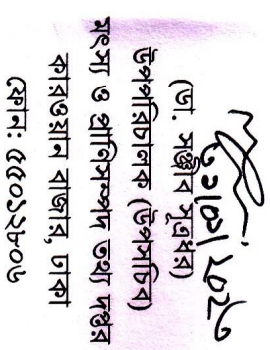 ৩১/০১/২০২৩
(ডা. সঞ্জীব সূত্রধর)
উপপরিচালক (উপসচিব)
মৎস্য ও প্রাণিসম্পদ তথ্য দপ্তর
কারওয়ান বাজার, ঢাকা
ফোন: ৫৫০১২৮০৬